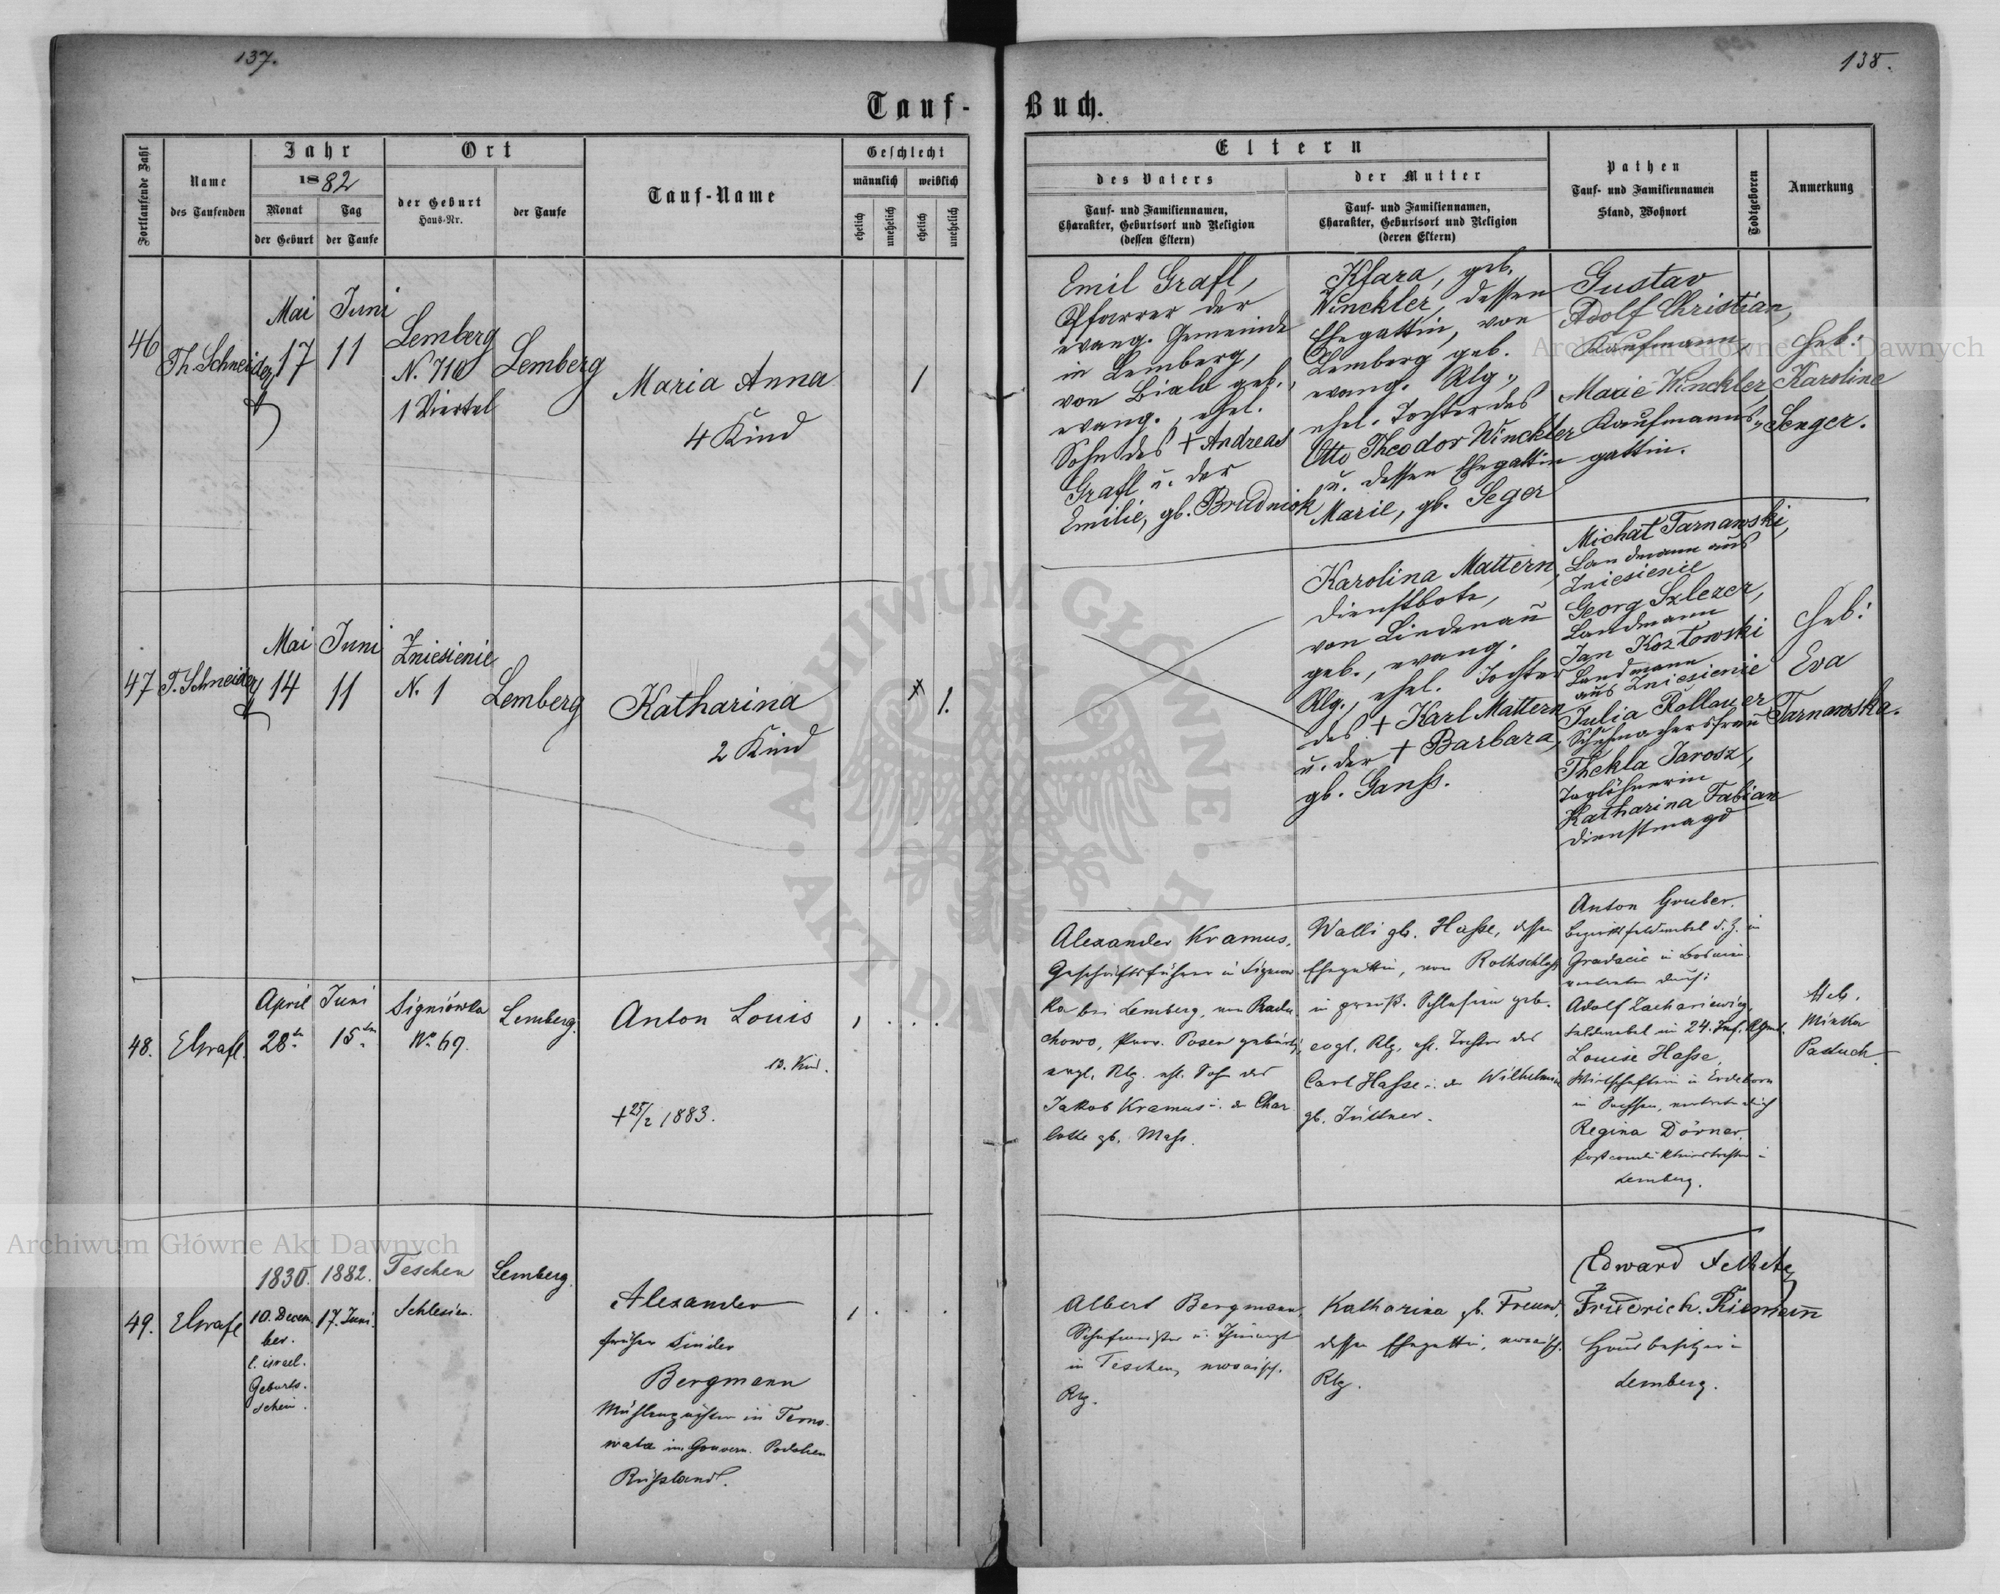 137.
138.
Tauf-
Buch.
Fortlaufende Zahl
Name
des Taufenden
Jahr
1882
Monat
der Geburt
Tag
der Taufe
Ort
der Geburt
Haus-Nr.
der Taufe
Tauf-Name
Geschlecht
männlich
weiblich
ehelich
unehelich
ehelich
unehelich
Eltern
des Vaters
Tauf- und Familiennamen,
Charakter, Geburtsort und Religion
(dessen Eltern)
der Mutter
Tauf- und Familiennamen,
Charakter, Geburtsort und Religion
(deren Eltern)
Pathen
Tauf- und Familiennamen
Stand, Wohnort
Todtgeboren
Anmerkung
46
Th. Schneider
Mai
17
Juni
11
Lemberg
N. 710
1 Viertel
Lemberg
Maria Anna
4 Kind
1
Emil Grafl,
Pfarrer der
evang. Gemeinde
in Lemberg,
von Biala geb.,
evang., ehel.
Sohn des + Andreas
Grafl u. der
Emilie, gb. Brudniok
Klara, geb.
Winckler, dessen
Ehegattin, von
Lemberg geb.
evang. Rlg.,
ehel. Tochter des
Otto Theodor Winckler
u. dessen Ehegattin
Marie, gb. Seger
Gustav
Adolf Christian,
Kaufmann,
Marie Winckler,
Kaufmanns-
gattin.
Heb:
Karoline
Senger.
47
T. Schneider
Mai
14
Juni
11
Zniesienie
N. 1
Lemberg
Katharina
2 Kind
1.
Karolina Mattern,
Dienstbote,
von Lindenau
geb., evang.
Rlg., ehel. Tochter
des + Karl Mattern
u. der + Barbara,
gb. Ganß.
Michał Tarnawski,
Landmann aus
Zniesienie
Georg Szlezer,
Landmann
Jan Kozłowski
Landmann
aus Zniesienie
Julia Rollauer
Schuhmachersfrau
Thekla Jarosz,
Taglöhnerin
Katharina Fabian
Dienstmagd
Heb:
Eva
Tarnawska.
48.
EGrafl
April
28ten
Juni
15ten
Signiówka
No 69.
Lemberg.
Anton Louis
10. Kind.
+ 25/2 1883.
1
Alexander Kramus,
Geschäftsführer in Signiow-
ka bei Lemberg, von Radu
chowo, Prov. Posen gebürtig,
evgl. Rlg. ehl. Sohn des
Jakob Kramus u. der Char-
lotte gb. Mass.
Walli gb. Hasse, dessen
Ehegattin, von Rothschloss
in preuß. Schlesien geb.
evgl. Rlg. ehl. Tochter des
Carl Hasse u. der Wilhelmine
gb. Jüttner.
Anton Gruber.
Bezirksfeldwebel d. Z. in
Gradacic in Bosnien
vertreten durch:
Adolf Zachariewicz,
Feldwebel im 24. Inf. Rgmt.
Louise Hasse,
Wirtschafterin in Erdeborn
in Sachsen, vertreten durch
Regina Dörner,
Lemberg.
Heb.
Minka
Pastuch.
49.
EGrafl
1830.
10. Decem-
ber.
l. israel.
Geburts-
schein.
1882.
17. Juni.
Teschen
Schlesien.
Lemberg.
Alexander
früher Sinder
Bergmann
Mühlenpächter in Terno-
wata im Gouvern. Podolien
Rußland.
1
Albert Bergmann,
in Teschen, mosaisch.
Rlg.
Katharina gb. Freund,
dessen Ehegattin, mosaisch.
Rlg.
Edward Fekete
Friedrich Riemann
Hausbesitzer in
Lemberg.
Archiwum Główne Akt Dawnych
Archiwum Główne Akt Dawnych
ARCHIWUM GŁÓWNE AKT DAWNYCH